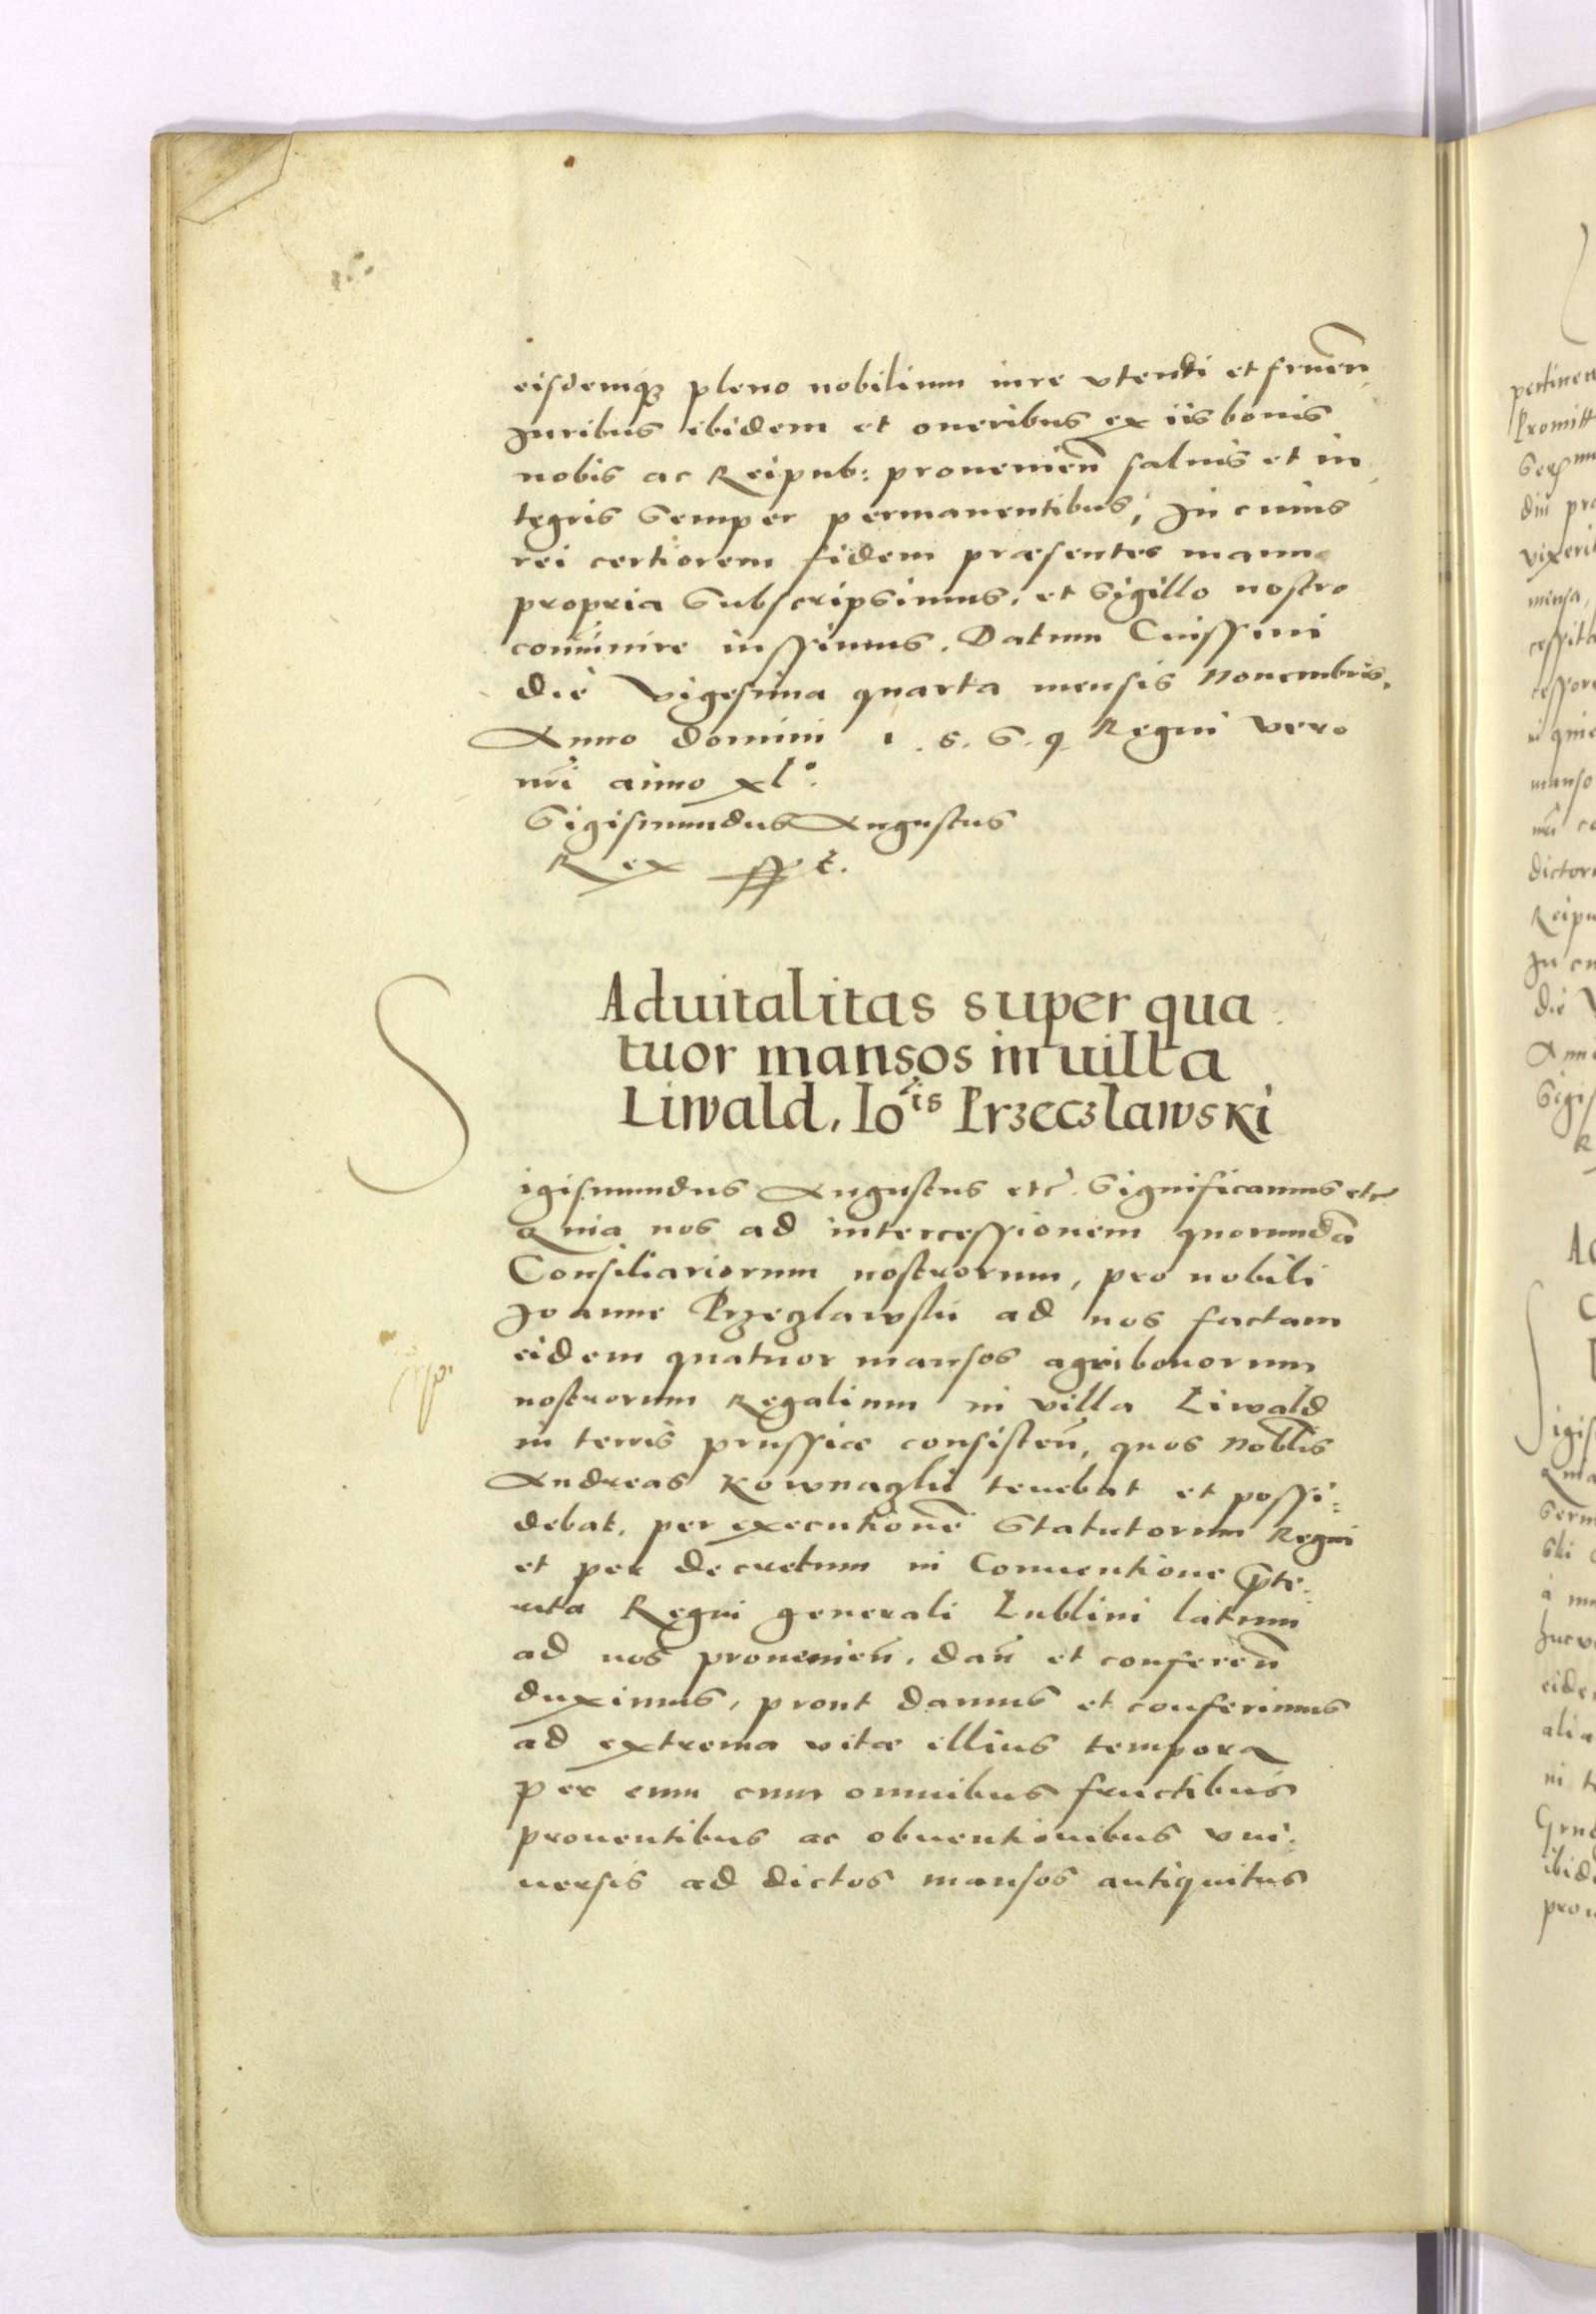 eisdemq₃ pleno nobilium iure vtendi et fruen̄,
Juribus ibidem et oneribus ex iis bonis
nobis ac Reipub: prouenien̄ saluis et in
tegris semper permanentibus, In cuius
rei certiorem fidem præsentes manu
propria subscripsimus, et Sigillo nostro
com̄unire iussimus. Datum Cnissini
die vigesima quarta mensis Nouembris.
Anno domini 1.5.6.9 Regni vero
nr̄i anno xl°.
Sigismundus Augustus
Rex sspt.
Aduitalitas super qua
tuor mansos in uilla
Liwald, Io:is Przeczlawski
Sigismundus Augustus etc̄. Significamus etc̄
Quia nos ad intercessionem quorundā
Consiliariorum nostrorum, pro nobili
Joanne Przeczlawski ad nos factam
eidem quatuor mansos agri bonorum
nostrorum Regalium in villa Liwald
in terris prussiæ consisten̄, quos Nobl̄is
Andreas Kownaczki tenebat et possi:
debat, per executionē Statutorum Regni
et per decretum in Conuentione p̄te:
rita Regni generali Lublini latum
ad nos prouenien̄, dan̄ et conferen̄
duximus, prout damus et conferimus
ad extrema vitæ illius tempora
per eum cum omnibus fructibus
prouentibus ac obuentionibus vni:
uersis ad dictos mansos antiquitus